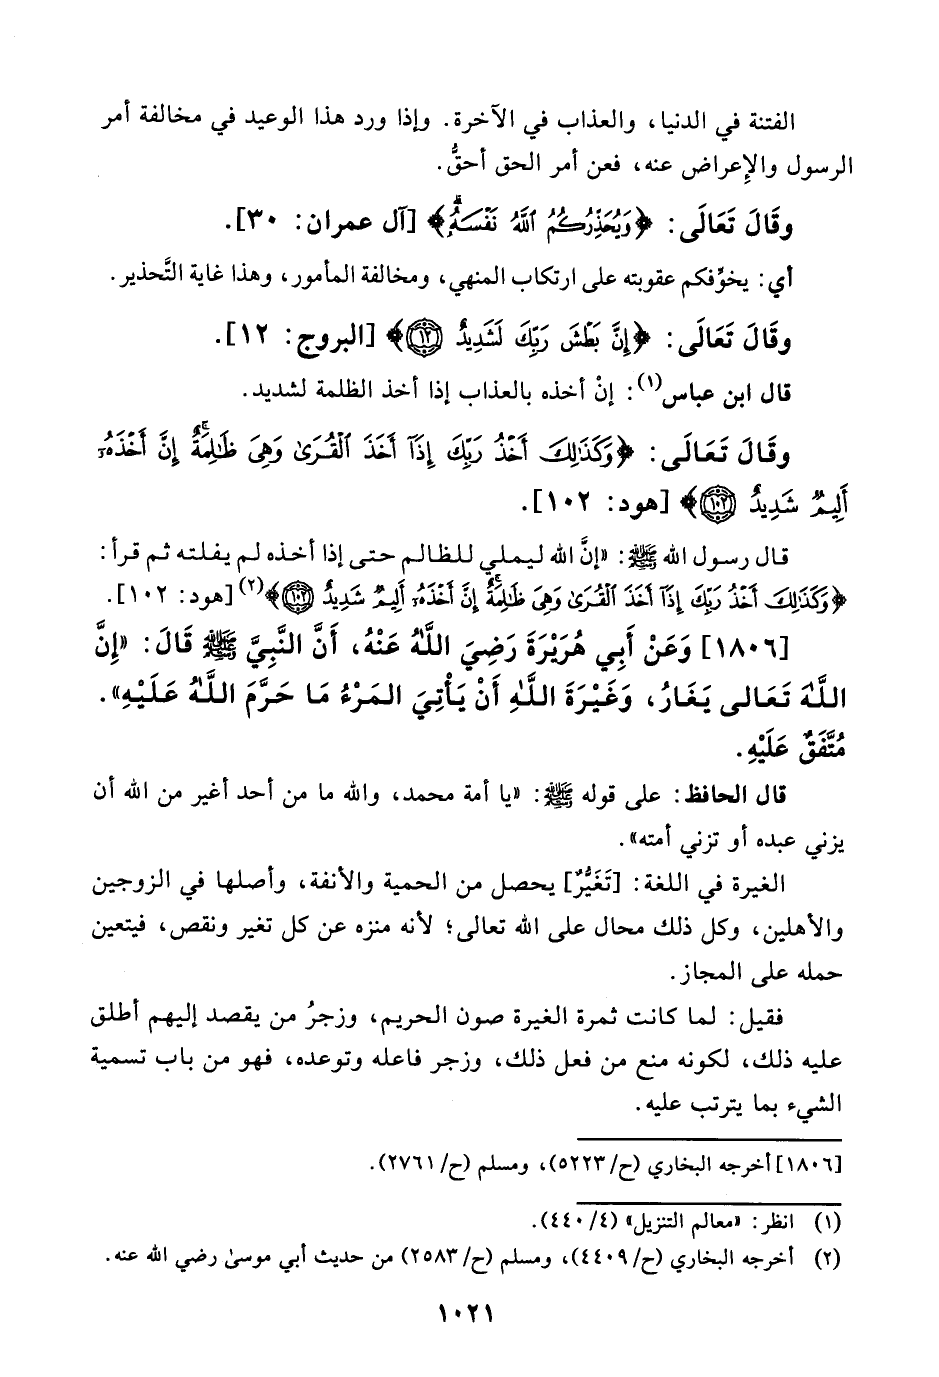 الفتنة في الدنيا، والعذاب في الآخرة. وإذا ورد هذا الوعيد في مخالفة أمر
الرسول والإعراض عنه، فعن أمر الحق أحقُّ.
وقَالَ تَعَالَى: ﴿وَيُحَذِّرُكُمُ ٱللَّهُ نَفْسَهُۥۗ﴾ [آل عمران: ٣٠].
أي: يخوِّفكم عقوبته على ارتكاب المنهي، ومخالفة المأمور، وهذا غاية التَّحذير.
وقَالَ تَعَالَى: ﴿إِنَّ بَطْشَ رَبِّكَ لَشَدِيدٌ ١٢﴾ [البروج: ١٢].
قال ابن عباس(١): إنْ أخذه بالعذاب إذا أخذ الظلمة لشديد.
وقَالَ تَعَالَى: ﴿وَكَذَٰلِكَ أَخْذُ رَبِّكَ إِذَآ أَخَذَ ٱلْقُرَىٰ وَهِىَ ظَٰلِمَةٌۚ إِنَّ أَخْذَهُۥٓ
أَلِيمٌ شَدِيدٌ ١٠٢﴾ [هود: ١٠٢].
قال رسول الله ﷺ: «إنَّ الله ليملي للظالم حتى إذا أخذه لم يفلته ثم قرأ:
﴿وَكَذَٰلِكَ أَخْذُ رَبِّكَ إِذَآ أَخَذَ ٱلْقُرَىٰ وَهِىَ ظَٰلِمَةٌۚ إِنَّ أَخْذَهُۥٓ أَلِيمٌ شَدِيدٌ ١٠٢﴾(٢) [هود: ١٠٢].
[١٨٠٦] وَعَنْ أَبِي هُرَيْرَةَ رَضِيَ اللَّهُ عَنْهُ، أَنَّ النَّبِيَّ ﷺ قَالَ: «إِنَّ
اللَّهَ تَعَالى يَغَارُ، وَغَيْرَةَ اللَّهِ أَنْ يَأْتِيَ المَرْءُ مَا حَرَّمَ اللَّهُ عَلَيْهِ».
مُتَّفَقٌ عَلَيْهِ.
قال الحافظ: على قوله ﷺ: «يا أمة محمد، والله ما من أحد أغير من الله أن
يزني عبده أو تزني أمته».
الغيرة في اللغة: [تَغَيُّرٌ] يحصل من الحمية والأنفة، وأصلها في الزوجين
والأهلين، وكل ذلك محال على الله تعالى؛ لأنه منزه عن كل تغير ونقص، فيتعين
حمله على المجاز.
فقيل: لما كانت ثمرة الغيرة صون الحريم، وزجرُ من يقصد إليهم أطلق
عليه ذلك، لكونه منع من فعل ذلك، وزجر فاعله وتوعده، فهو من باب تسمية
الشيء بما يترتب عليه.
[١٨٠٦] أخرجه البخاري (ح/ ٥٢٢٣)، ومسلم (ح/ ٢٧٦١).
(١) انظر: «معالم التنزيل» (٤/ ٤٤٠).
(٢) أخرجه البخاري (ح/ ٤٤٠٩)، ومسلم (ح/ ٢٥٨٣) من حديث أبي موسىٰ رضي الله عنه.
١٠٢١